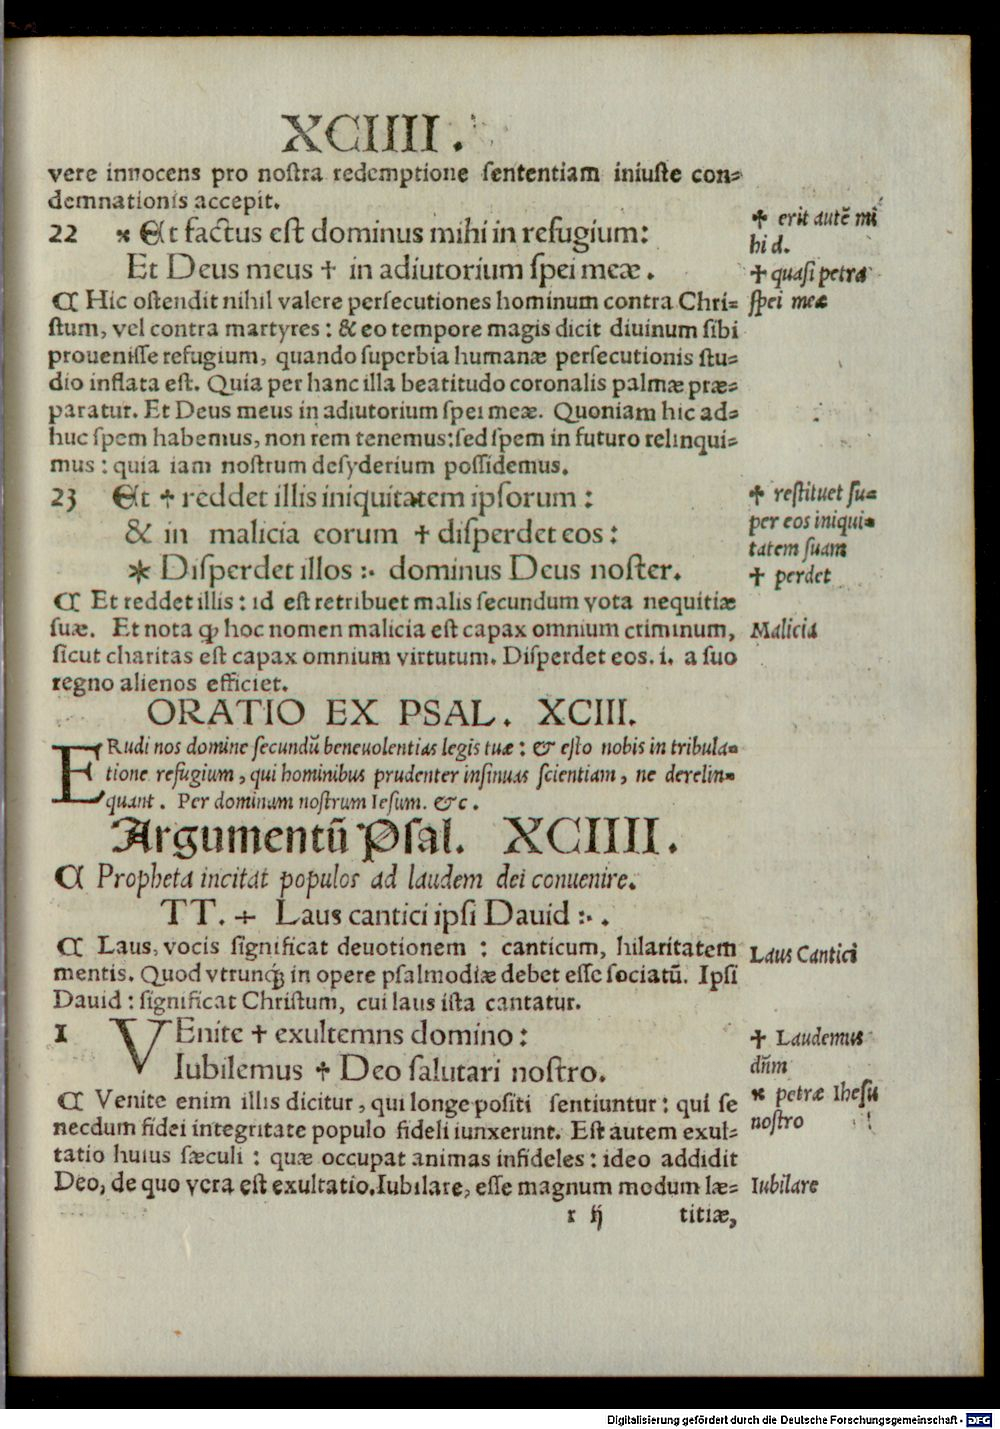 XCIIII.
vere innocens pro nostra redemptione sententiam iniuste con=
demnationis accepit.
22 * Et factus est dominus mihi in refugium:
Et Deus meus † in adiutorium spei meæ.
¶ Hic ostendit nihil valere persecutiones hominum contra Chri=
stum, vel contra martyres: & eo tempore magis dicit diuinum sibi
prouenisse refugium, quando superbia humanæ persecutionis stu=
dio inflata est. Quia per hanc illa beatitudo coronalis palmæ præ=
paratur. Et Deus meus in adiutorium spei meæ. Quoniam hic ad=
huc spem habemus, non rem tenemus: sed spem in futuro relinqui=
mus: quia iam nostrum desyderium possidemus.
23 Et † reddet illis iniquitatem ipsorum:
& in malicia eorum † disperdet eos:
* Disperdet illos :· dominus Deus noster.
¶ Et reddet illis: id est retribuet malis secundum vota nequitiæ
suæ. Et nota ꝙ hoc nomen malicia est capax omnium criminum,
sicut charitas est capax omnium virtutum. Disperdet eos. i. a suo
regno alienos efficiet.
† erit autē mi
hi d.
† quasi petra
spei meæ
† restituet su=
per eos iniqui=
tatem suam
† perdet
Malicia
ORATIO EX PSAL. XCIII.
ERudi nos domine secundū beneuolentias legis tuæ: & esto nobis in tribula=
tione refugium, qui hominibus prudenter insinuas scientiam, ne derelin=
quant. Per dominum nostrum Iesum. &c.
Argumentū Psal. XCIIII.
¶ Propheta incitat populos ad laudem dei conuenire.
TT. ÷ Laus cantici ipsi Dauid :·.
¶ Laus, vocis significat deuotionem: canticum, hilaritatem
mentis. Quod vtrunqꝫ in opere psalmodiæ debet esse sociatū. Ipsi
Dauid: significat Christum, cui laus ista cantatur.
Laus Cantici
1 VEnite † exultemns domino:
Iubilemus † Deo salutari nostro.
¶ Venite enim illis dicitur, qui longe positi sentiuntur: qui se
necdum fidei integritate populo fideli iunxerunt. Est autem exul=
tatio huius sæculi: quæ occupat animas infideles: ideo addidit
Deo, de quo vera est exultatio. Iubilare, esse magnum modum læ=
† Laudemus
dn̄m
* petræ Ihesu
nostro
Iubilare
r ij titiæ,
Digitalisierung gefördert durch die Deutsche Forschungsgemeinschaft - DFG